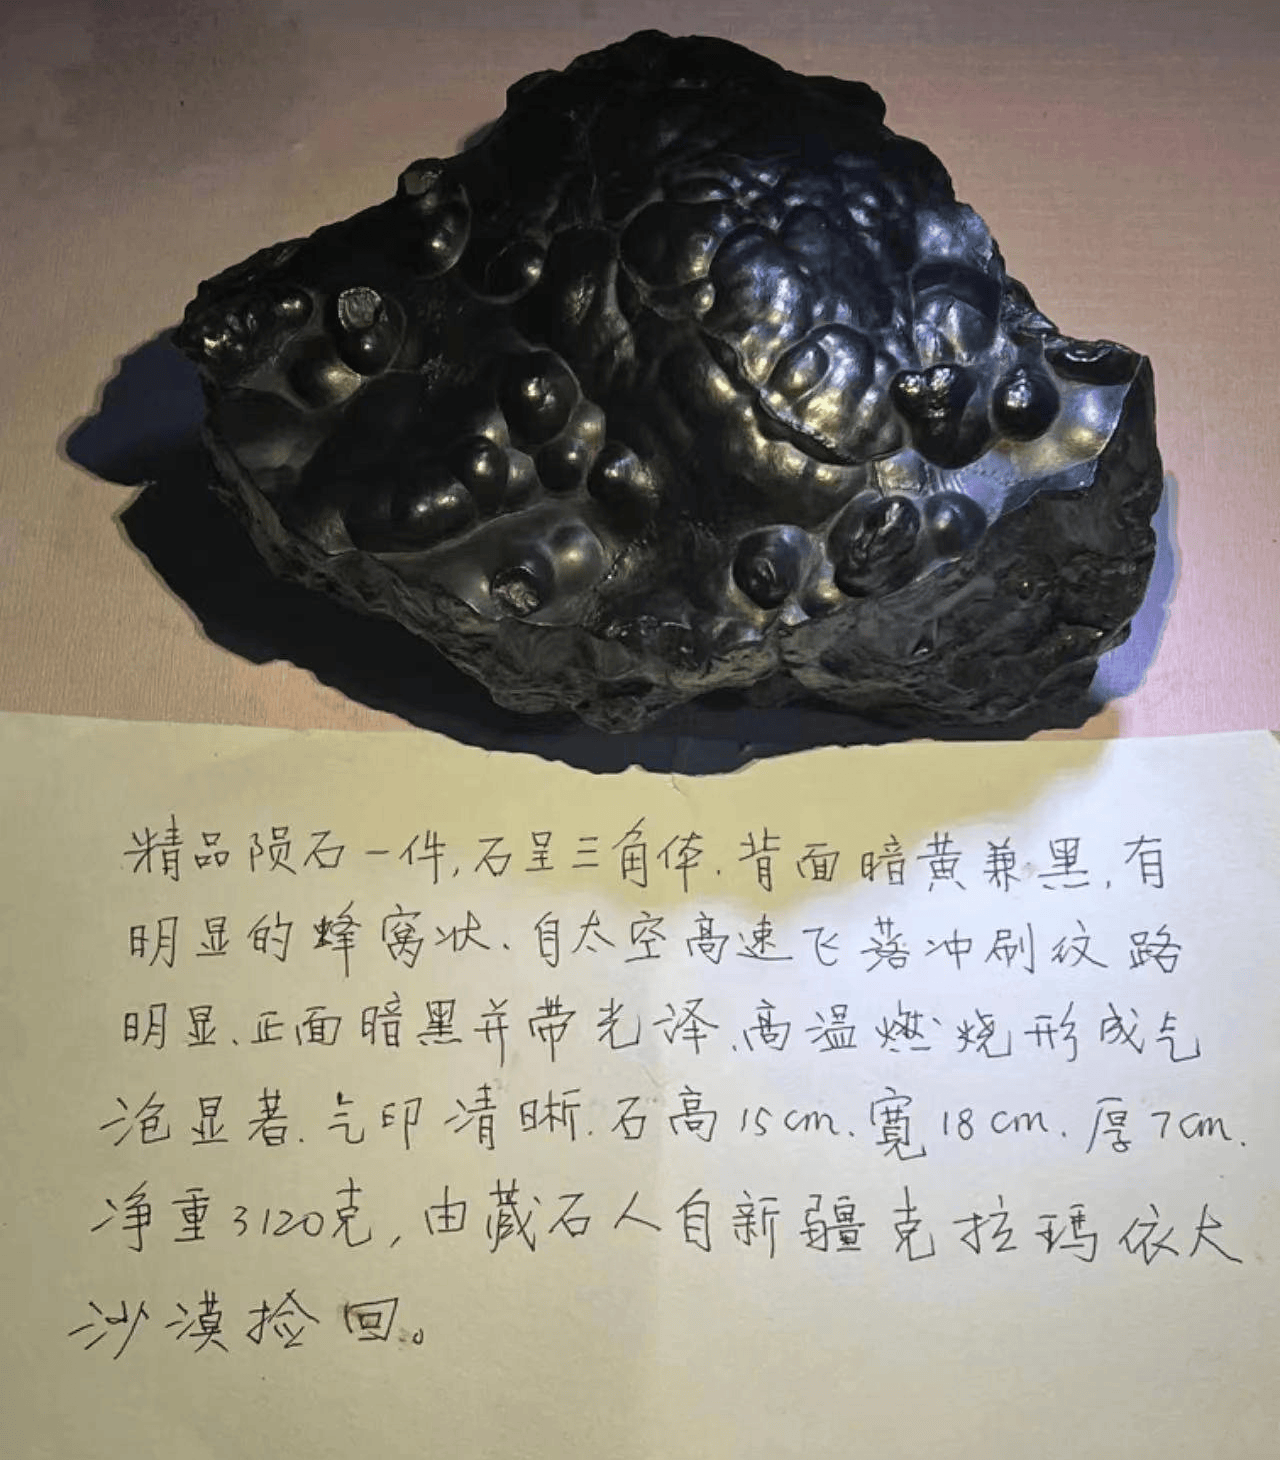 精品陨石一件,石呈三角体.背面暗黄兼黑.有
明显的蜂窝状.自太空高速飞落冲刷纹路
明显.正面暗黑并带光泽.高温燃烧形成气
泡显著.气印清晰.石高15cm.寬18cm.厚7cm.
净重3120克,由藏石人自新疆克拉玛依大
沙漠捡回。